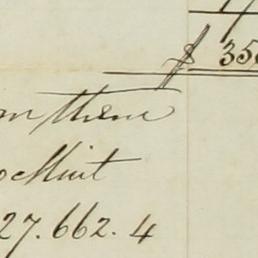 $ 35
m them
o Mint
27.662.4